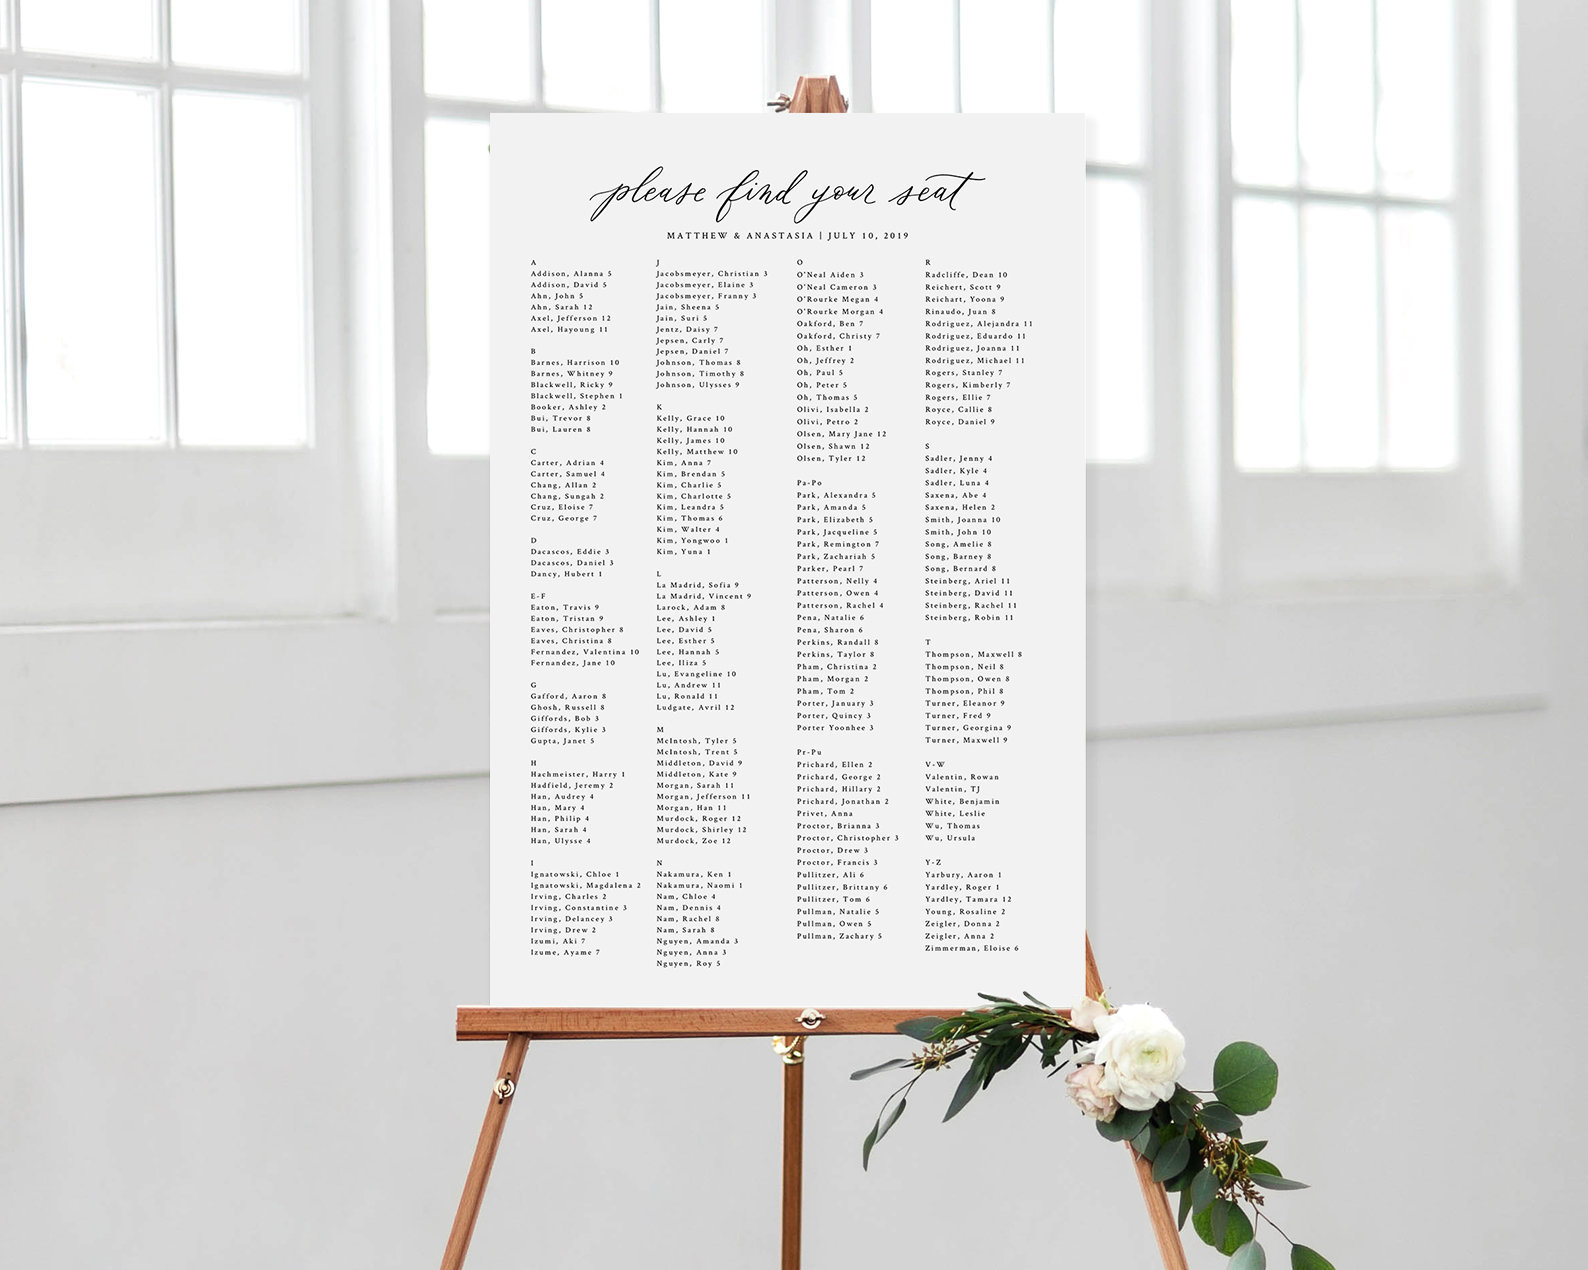 please find your seat
MATTHEW & ANASTASIA | JULY 10, 2019
A
Addison, Alanna 5
Addison, David 5
Ahn, John 5
Ahn, Sarah 12
Axel, Jefferson 12
Axel, Hayoung 11
B
Barnes, Harrison 10
Barnes, Whitney 9
Blackwell, Ricky 9
Blackwell, Stephen 1
Booker, Ashley 2
Bui, Trevor 8
Bui, Lauren 8
C
Carter, Adrian 4
Carter, Samuel 4
Chang, Allan 2
Chang, Sungah 2
Cruz, Eloise 7
Cruz, George 7
D
Dacascos, Eddie 3
Dacascos, Daniel 3
Dancy, Hubert 1
E-F
Eaton, Travis 9
Eaton, Tristan 9
Eaves, Christopher 8
Eaves, Christina 8
Fernandez, Valentina 10
Fernandez, Jane 10
G
Gafford, Aaron 8
Ghosh, Russell 8
Giffords, Bob 3
Giffords, Kylie 3
Gupta, Janet 5
H
Hachmeister, Harry 1
Hadfield, Jeremy 2
Han, Audrey 4
Han, Mary 4
Han, Philip 4
Han, Sarah 4
Han, Ulysse 4
I
Ignatowski, Chloe 1
Ignatowski, Magdalena 2
Irving, Charles 2
Irving, Constantine 3
Irving, Delancey 3
Irving, Drew 2
Izumi, Aki 7
Izume, Ayame 7
J
Jacobsmeyer, Christian 3
Jacobsmeyer, Elaine 3
Jacobsmeyer, Franny 3
Jain, Sheena 5
Jain, Suri 5
Jentz, Daisy 7
Jepsen, Carly 7
Jepsen, Daniel 7
Johnson, Thomas 8
Johnson, Timothy 8
Johnson, Ulysses 9
K
Kelly, Grace 10
Kelly, Hannah 10
Kelly, James 10
Kelly, Matthew 10
Kim, Anna 7
Kim, Brendan 5
Kim, Charlie 5
Kim, Charlotte 5
Kim, Leandra 5
Kim, Thomas 6
Kim, Walter 4
Kim, Yongwoo 1
Kim, Yuna 1
L
La Madrid, Sofia 9
La Madrid, Vincent 9
Larock, Adam 8
Lee, Ashley 1
Lee, David 5
Lee, Esther 5
Lee, Hannah 5
Lee, Iliza 5
Lu, Evangeline 10
Lu, Andrew 11
Lu, Ronald 11
Ludgate, Avril 12
M
McIntosh, Tyler 5
McIntosh, Trent 5
Middleton, David 9
Middleton, Kate 9
Morgan, Sarah 11
Morgan, Jefferson 11
Morgan, Han 11
Murdock, Roger 12
Murdock, Shirley 12
Murdock, Zoe 12
N
Nakamura, Ken 1
Nakamura, Naomi 1
Nam, Chloe 4
Nam, Dennis 4
Nam, Rachel 8
Nam, Sarah 8
Nguyen, Amanda 3
Nguyen, Anna 3
Nguyen, Roy 5
O
O'Neal Aiden 3
O'Neal Cameron 3
O'Rourke Megan 4
O'Rourke Morgan 4
Oakford, Ben 7
Oakford, Christy 7
Oh, Esther 1
Oh, Jeffrey 2
Oh, Paul 5
Oh, Peter 5
Oh, Thomas 5
Olivi, Isabella 2
Olivi, Petro 2
Olsen, Mary Jane 12
Olsen, Shawn 12
Olsen, Tyler 12
Pa-Po
Park, Alexandra 5
Park, Amanda 5
Park, Elizabeth 5
Park, Jacqueline 5
Park, Remington 7
Park, Zachariah 5
Parker, Pearl 7
Patterson, Nelly 4
Patterson, Owen 4
Patterson, Rachel 4
Pena, Natalie 6
Pena, Sharon 6
Perkins, Randall 8
Perkins, Taylor 8
Pham, Christina 2
Pham, Morgan 2
Pham, Tom 2
Porter, January 3
Porter, Quincy 3
Porter Yoonhee 3
Pr-Pu
Prichard, Ellen 2
Prichard, George 2
Prichard, Hillary 2
Prichard, Jonathan 2
Privet, Anna
Proctor, Brianna 3
Proctor, Christopher 3
Proctor, Drew 3
Proctor, Francis 3
Pullitzer, Ali 6
Pullitzer, Brittany 6
Pullitzer, Tom 6
Pullman, Natalie 5
Pullman, Owen 5
Pullman, Zachary 5
R
Radcliffe, Dean 10
Reichert, Scott 9
Reichart, Yoona 9
Rinaudo, Juan 8
Rodriguez, Alejandra 11
Rodriguez, Eduardo 11
Rodriguez, Joanna 11
Rodriguez, Michael 11
Rogers, Stanley 7
Rogers, Kimberly 7
Rogers, Ellie 7
Royce, Callie 8
Royce, Daniel 9
S
Sadler, Jenny 4
Sadler, Kyle 4
Sadler, Luna 4
Saxena, Abe 4
Saxena, Helen 2
Smith, Joanna 10
Smith, John 10
Song, Amelie 8
Song, Barney 8
Song, Bernard 8
Steinberg, Ariel 11
Steinberg, David 11
Steinberg, Rachel 11
Steinberg, Robin 11
T
Thompson, Maxwell 8
Thompson, Neil 8
Thompson, Owen 8
Thompson, Phil 8
Turner, Eleanor 9
Turner, Fred 9
Turner, Georgina 9
Turner, Maxwell 9
V-W
Valentin, Rowan
Valentin, TJ
White, Benjamin
White, Leslie
Wu, Thomas
Wu, Ursula
Y-Z
Yarbury, Aaron 1
Yardley, Roger 1
Yardley, Tamara 12
Young, Rosaline 2
Zeigler, Donna 2
Zeigler, Anna 2
Zimmerman, Eloise 6